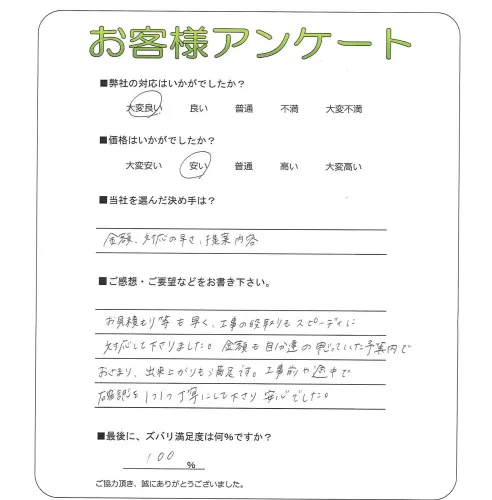 お客様アンケート
■弊社の対応はいかがでしたか？
大変良い 良い 普通 不満 大変不満
■価格はいかがでしたか？
大変安い 安い 普通 高い 大変高い
■当社を選んだ決め手は？
金額、対応の早さ、提案内容
■ご感想・ご要望などをお書き下さい。
お見積もり等も早く、工事の段取りもスピーディに
対応して下さりました。金額も自分達の思っていた予算内で
おさまり、出来上がりもう満足です。工事前や途中で
確認を1つ1つ丁寧にして下さり安心でした。
■最後に、ズバリ満足度は何%ですか？
100 %
ご協力頂き、誠にありがとうございました。